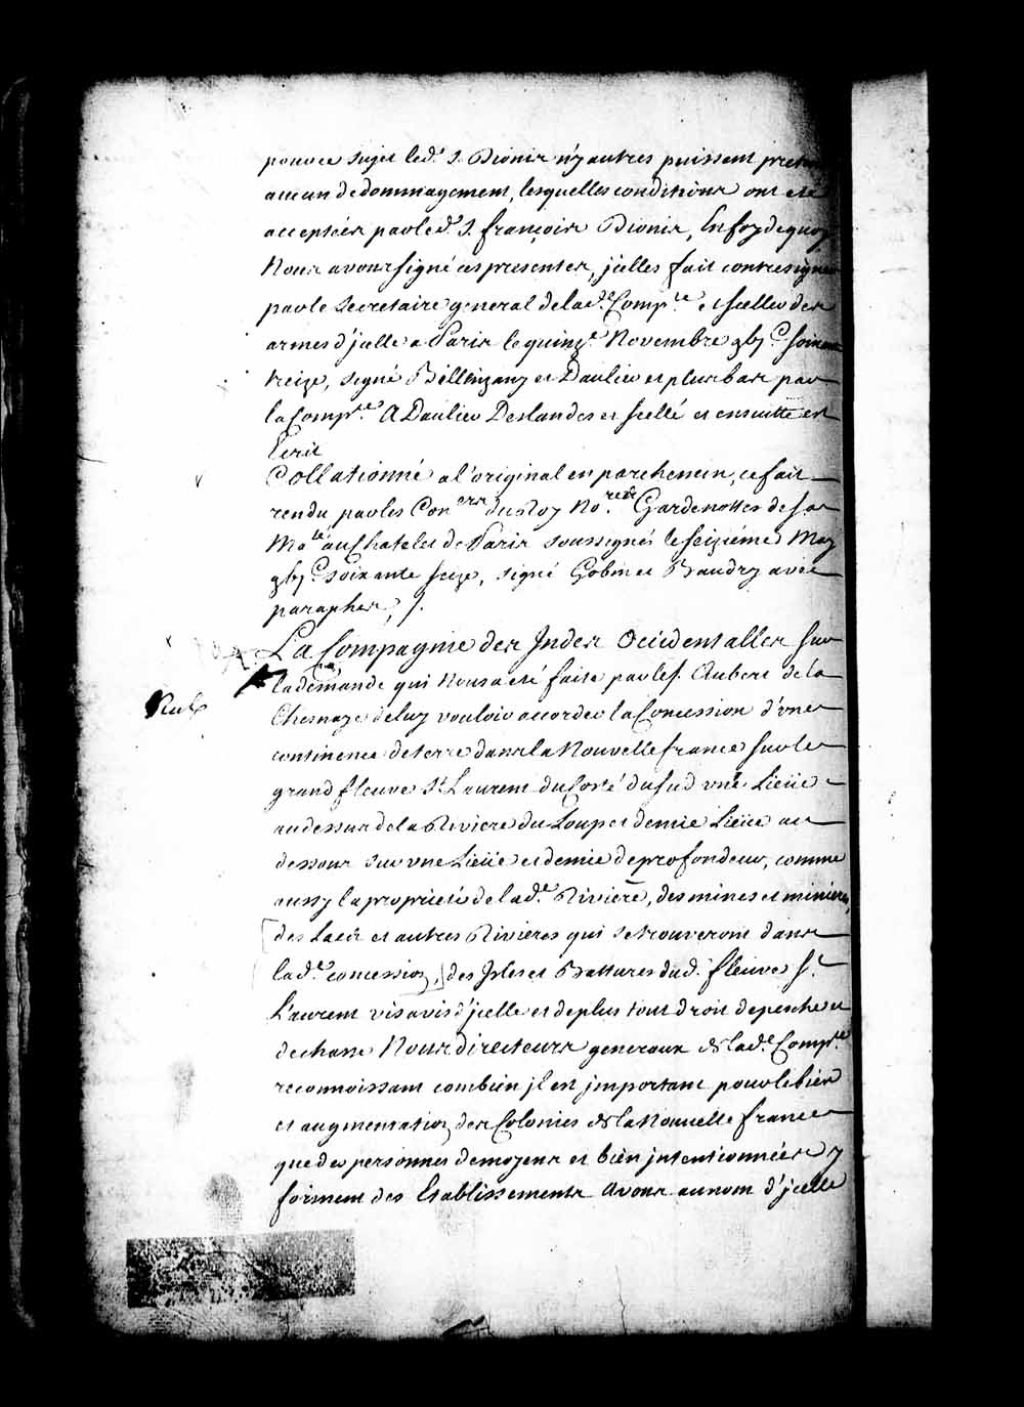 pour ce sujet led.t S. Dionis n'y autres puissent preten
aucun dedommagement, lesquelles conditions ont esté
acceptées par led.t S. françois Dionis, En foy de quoy
Nous avons signé ces presentes, jcelles fait contresigner
par le Secretaire general de lad.e Comp.ie et scellé des
armes d'jcelle a Paris le quinz.e Novembre gbj.c soixante
treize, signé Bellinzany et Daulier et plus bas par
la Comp.ie A Daulier Deslandes et scellé et ensuitte est
Ecrit
Collationné a l'original en parchemin, ce fait
rendu par les Con.ers du Roy No.res Gardenottes de Sa
Ma.té au Chatelet de Paris soussignés le seiziéme May
gbj.c soixante seize, signé Gobin et Baudry avec
paraphes, /.
La Compagnie des Jndes Occidentalles sur
la demande qui Nous a eté faite par le S. Aubert de la
Rien
Chesnaye de luy vouloir accorder la Concession d'une
continence de terre dans la Nouvelle france sur le
grand fleuve S.t Laurent du Costé du Sud une Lieüe
au dessus de la Riviere du Loup et demie Lieüe au
dessous sur une Lieüe et demie de profondeur, comme
aussy la proprieté de lad.e Riviere, des mines et minieres,
[des Lacs et autres Rivieres qui se trouveront dans
lad.e concession,] des Jsles et Battures dud. fleuve S.t
Laurent vis avis d'jcelle et de plus tout droit de pesche et
de chasse Nous directeurs generaux de lad.e Comp.ie
reconnoissant combien jl est jmportant pour le bien
et augmentation des Colonies de la Nouvelle france
que des personnes de moyens et bien jntentionnées y
forment des Etablissements avons au nom d'jcelle